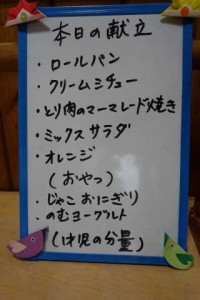 本日の献立
・ロールパン
・クリームシチュー
・とり肉のマーマレード焼き
・ミックスサラダ
・オレンジ
(おやつ)
・じゃこおにぎり
・のむヨーグルト
(1才児の分量)